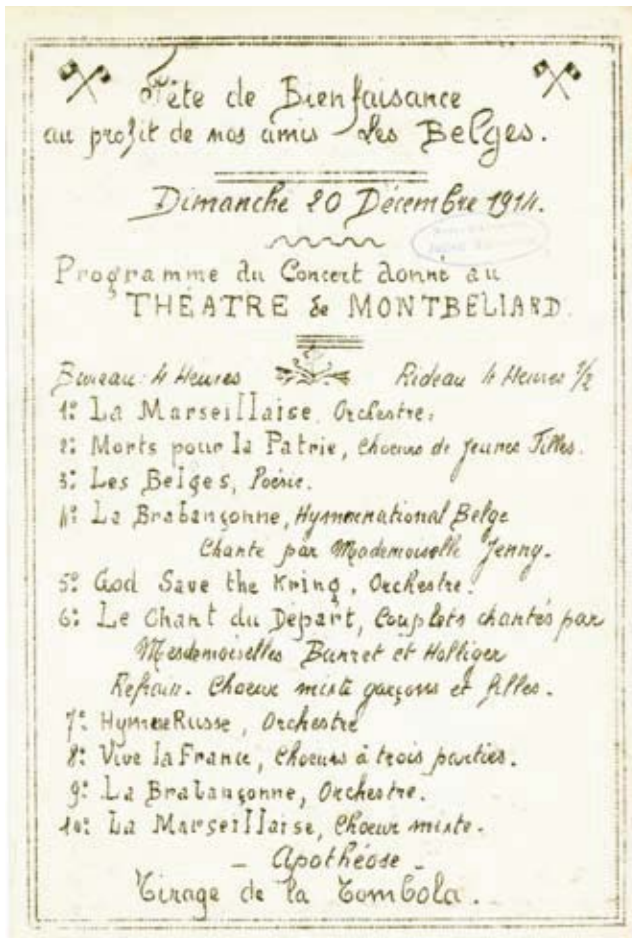 Fête de Bienfaisance
au profit de nos amis Les Belges.
Dimanche 20 Décembre 1914.
Programme du Concert donné au
THÉATRE de MONTBELIARD.
Bureau: 4 Heures Rideau 4 Heures 1/2
1º: La Marseillaise, Orchestre.
2º: Morts pour la Patrie, Choeurs de Jeunes Filles.
3º: Les Belges, Poésie.
4º: La Brabançonne, Hymne national Belge
Chanté par Mademoiselle Jenny.
5º God Save the Kring, Orchestre.
6º: Le Chant du Départ, Couplets chantés par
Mesdemoiselles Bunret et Holliger
Refrain. Choeur mixte garçons et filles.
7º: Hymne Russe, Orchestre
8º: Vive la France, Choeurs à trois parties.
9º: La Brabançonne, Orchestre.
10º: La Marseillaise, Choeur mixte.
- Apothéose -
Tirage de la Tombola.